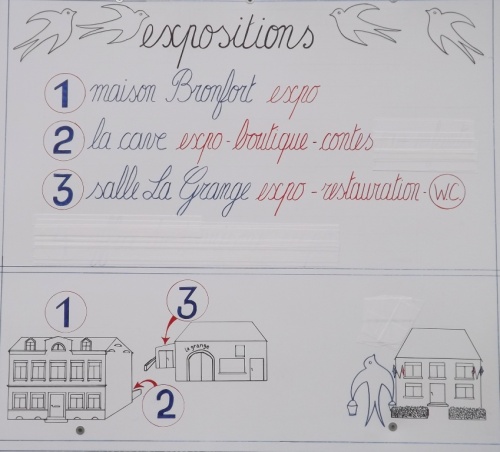 expositions
1 maison Bronfort expo
2 la cave expo - boutique - contes
3 salle La Grange expo - restauration - W.C.
1
3
la grange
2